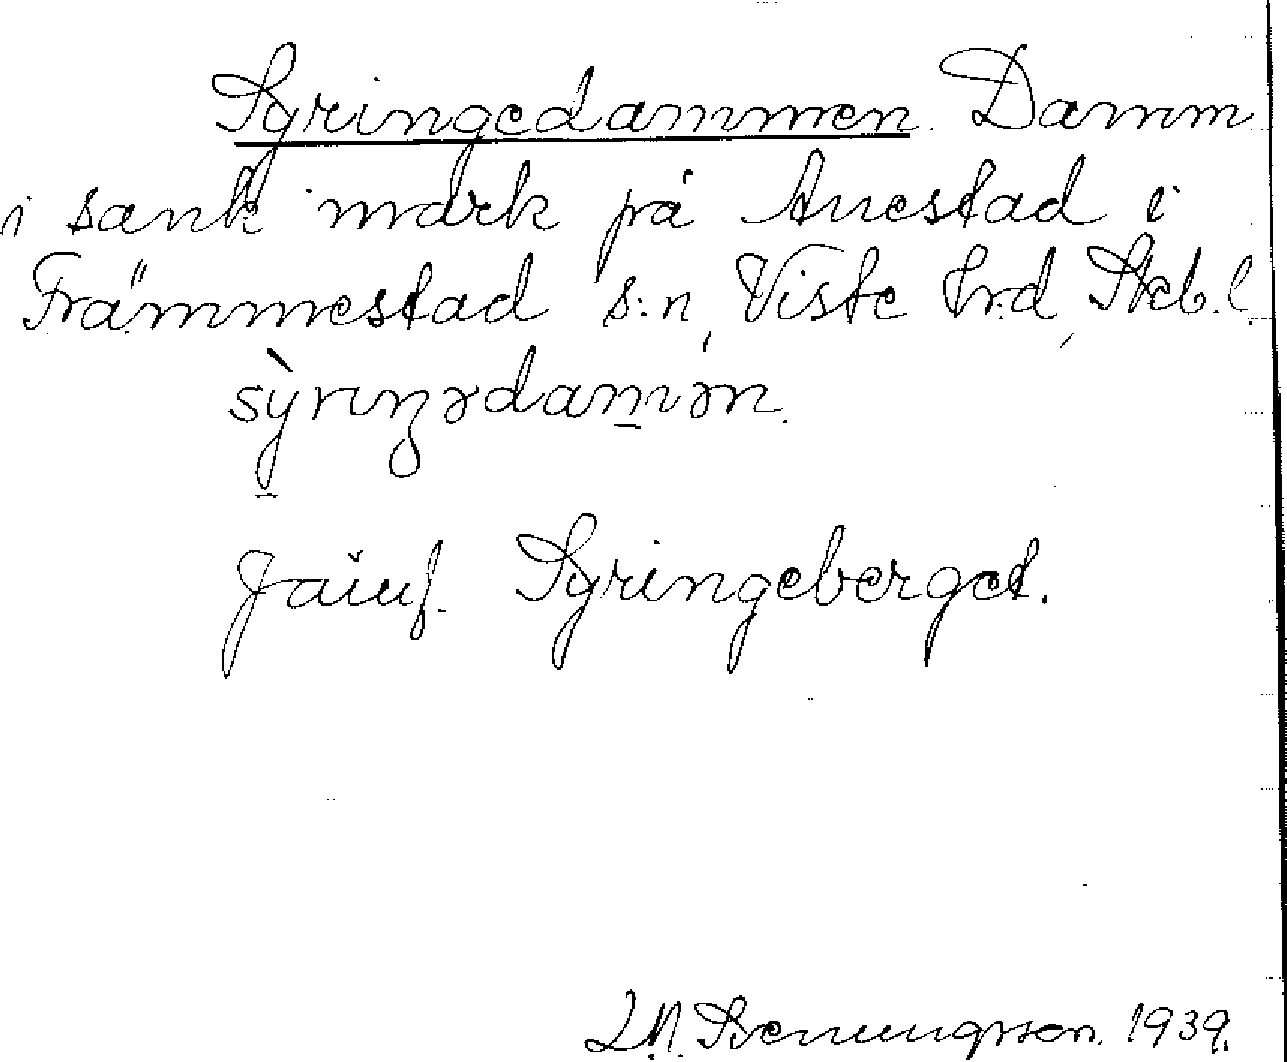 Syringedammen. Damm
i sank mark på Anestad i
Främmestad s:n, Viste hrd, Skb. l.
sỳrıŋədam̲ən.
Jämf. Syringeberget.
1939.